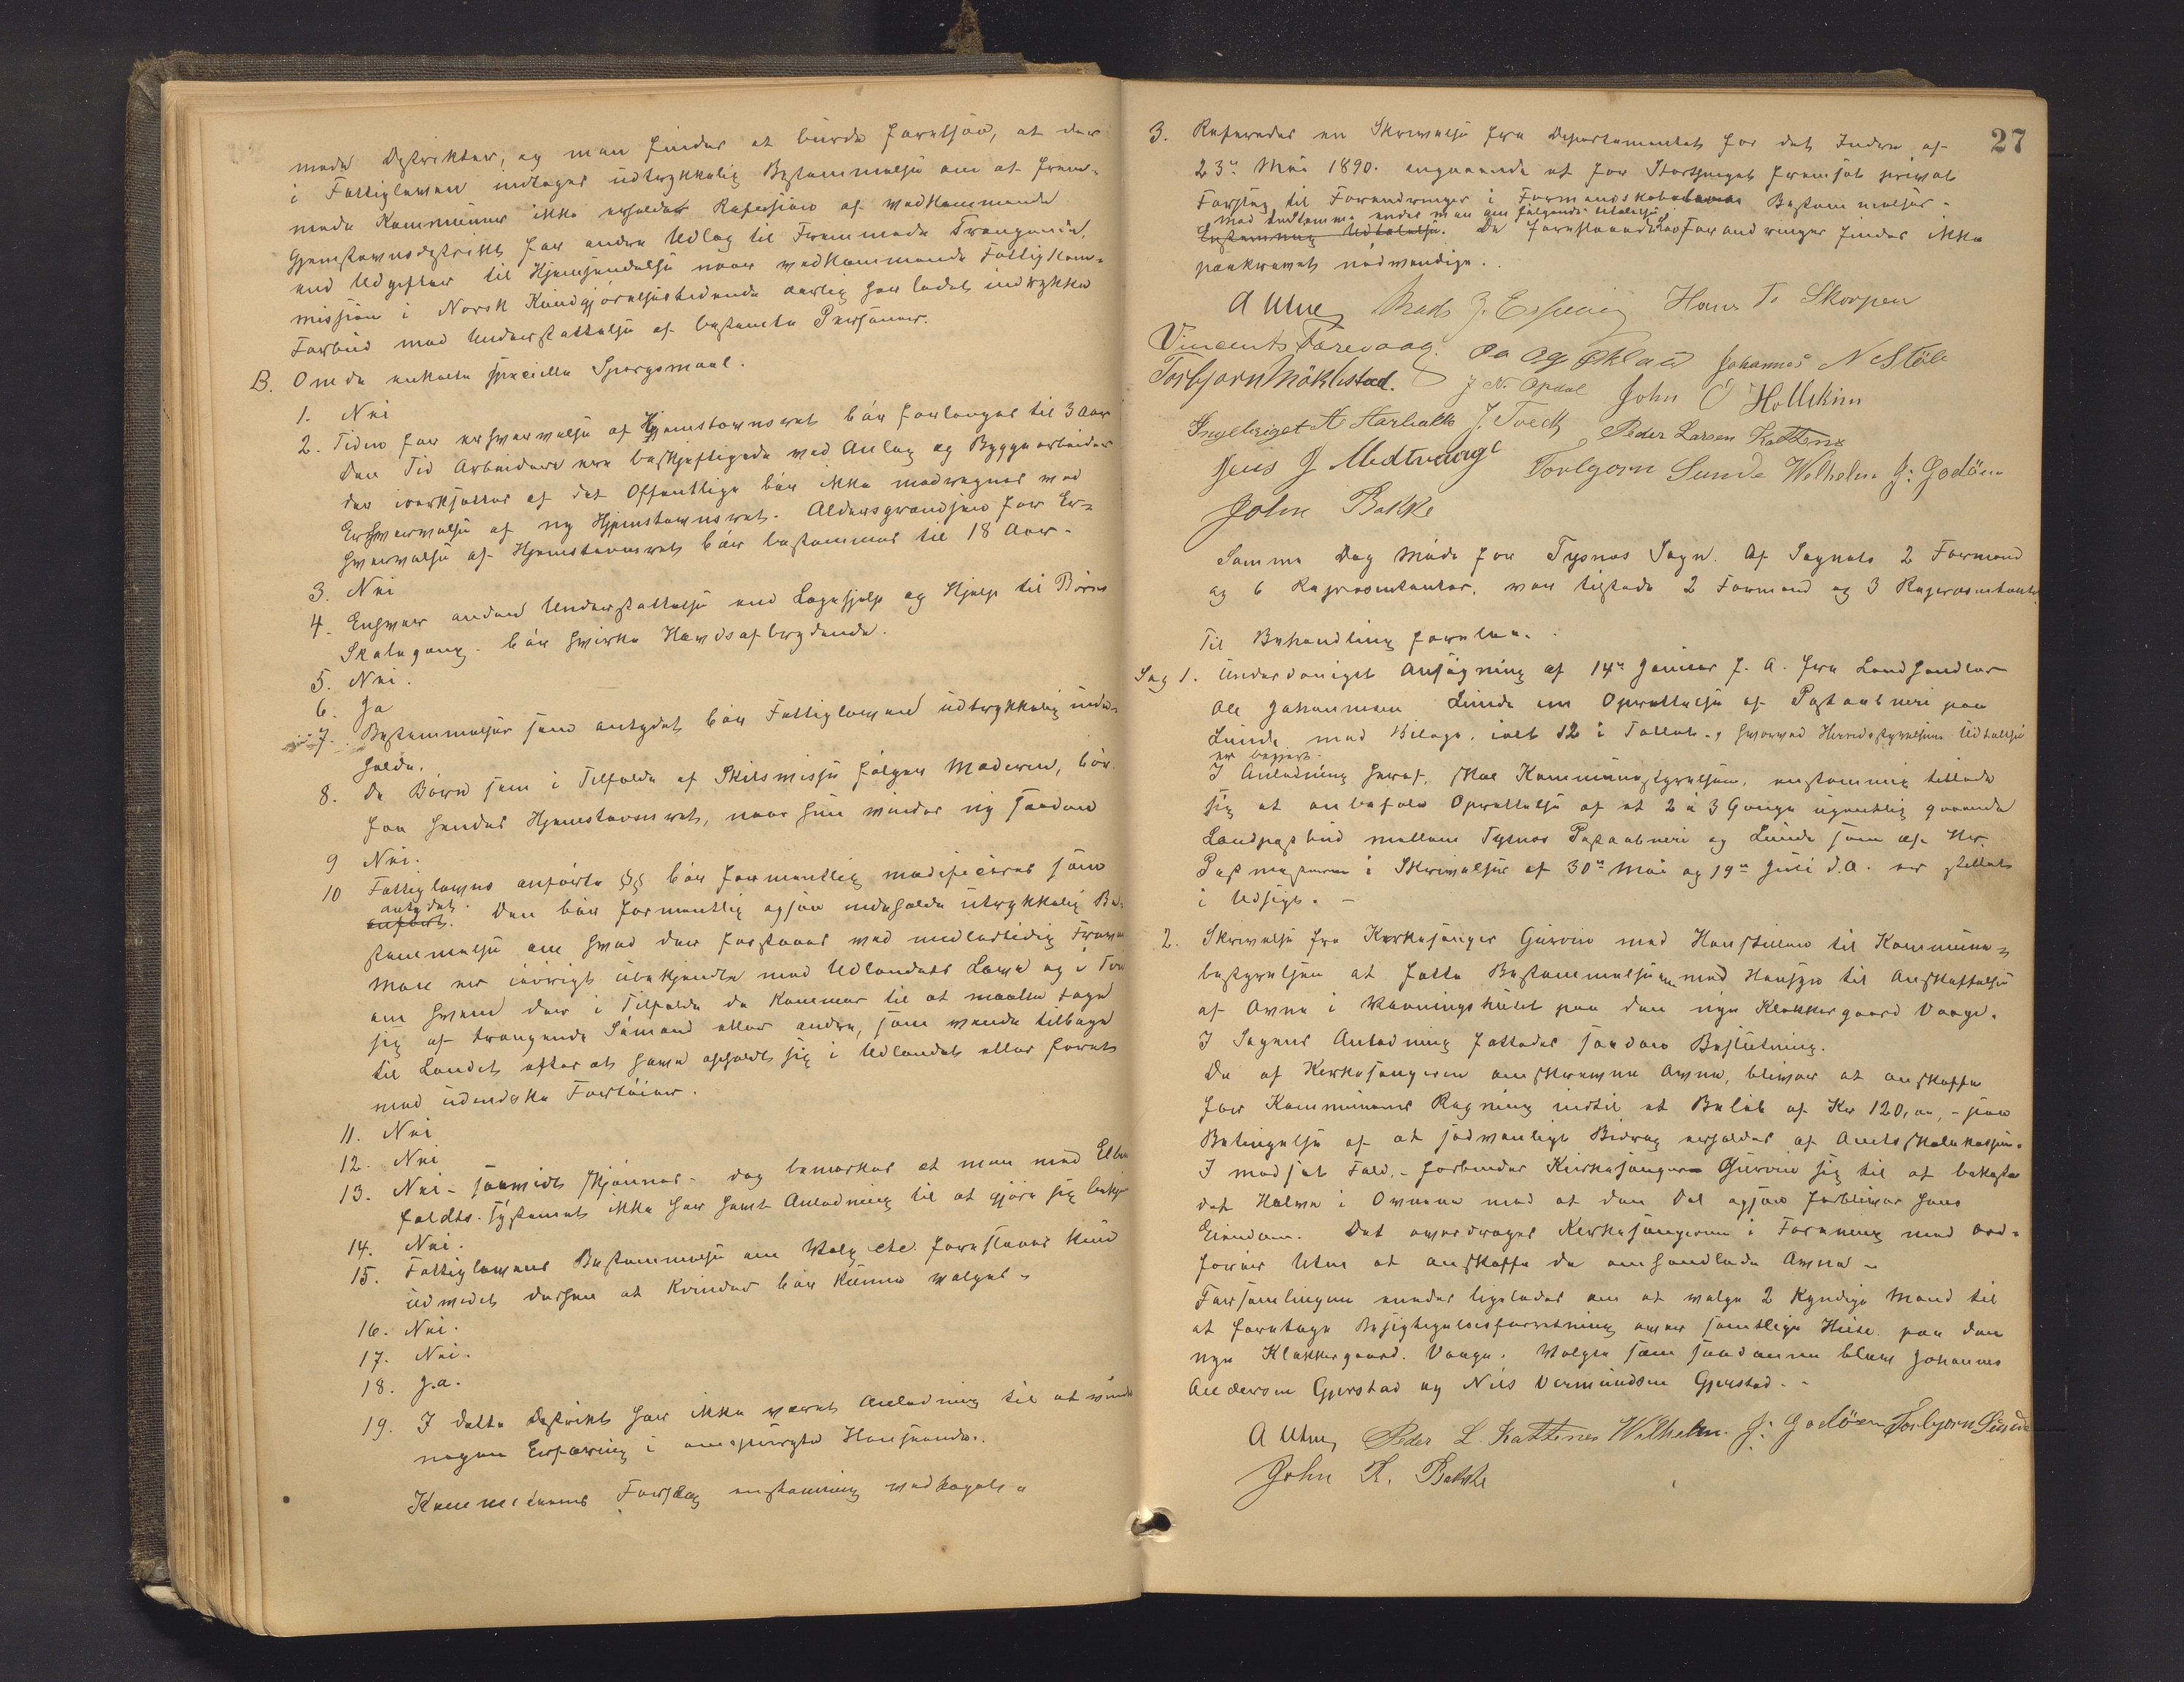 mede Distrikter, og man finder at burde foreslaa, at der
i Fattigloven indtages udtrykkelig Bestemmelse om at frem-
mede Kommuner ikke erholder Refusion af vedkommende
Hjemstavnsdistrikt for andre Udlæg til Fremmede Trængende,
end Udgifter til Hjemsendelse naar vedkommende Fattigkom-
mission i Norsk Kundgjørelsestidende aarlig har ladet indrykke
Forbud mod Understøttelse af bestemte Personer.
B. Om de enkelte specielle Spørgsmaal.
1. Nei
2. Tiden for erhvervelse af Hjemstavnsret bør forlænges til 3 Aar
Den Tid Arbeidere ere beskjeftigede ved Anlæg og Byggearbeider
der iverksættes af det Offentlige bør ikke medregnes ved
Erhvervelse af ny Hjemstavnsret. Aldersgrændsen for Er-
hvervelse af Hjemstavnsret bør bestemmes til 18 Aar.
3. Nei
4. Enhver anden Understøttelse end Lægehjelp og Hjelp til Børns
Skolegang. bør hvirke Hævdsafbrydende.
5. Nei.
6. Ja
7. Bestemmelser som antydet bør Fattigloven udtrykkelig inde-
holde.
8. De Børn som i Tilfælde af Skilsmisse følger Moderen, bør
faa hendes Hjemstavnsret, naar hun vinder ny saadan
9 Nei.
10 Fattiglovens anførte §§ bør formentlig modificeres som
antydet.
anført. Den bør formentlig ogsaa indeholde utrykkelig Be-
stemmelse om hvad der forstaaes ved midlertidig Fravæ
Man er iøvrigt ubekjendte med Udlandets Love og i Tvi
om hvem der i Tilfælde de kommer til at maatte tage
sig af trængende Sømænd eller andre, som vende tilbage
til Landet efter at have opholdt sig i Udlandet eller faret
med udenlandske Fartøier.
11. Nei
12. Nei
13. Nei - saavidt skjønnes - dog bemærkes at man med Elber
feldts. Systemet ikke har havt Anledning til at gjøre sig bekje
14. Nei.
15. Fattiglovens Bestemmelse om Valg etc. foreslaaes kun
udvidet derhen at Kvinder bør kunne vælges -
16. Nei.
17. Nei.
18. Ja.
19. I dette Distrikt har ikke været Anledning til at vinde
nogen Erfaring i omspurgte Henseende.
Kommiteens Forslag enstemmig vedtaget -
27
3. Refereredes en Skrivelse fra Departementet for det Indre af
23de Mai 1890. angaaende et for Storthinget fremsat privat
Forslag til Forandringer i Formandskabslovens Bestemmelser.
Enstemmig Udtalelse. De foreslaaede Forandringer findes ikke
paakrævet nødvendige.
A Utne Mads J. Espevig Hans T. Skorpen
Vincents Færevaag. Ole Ag Økland Johannes N Støle
Torbjørn Møklestad. J N. Opdal John O Hollekim
Ingebrigt A Aarbakke J. Tveit Peder Larsen Kattenes
Jens J Midtvaage Torbjørn Sunde Wilhelm G: Godøen
John Bakke
Samme Dag Møde for Tysnæs Sogn. Af Sognets 2 Formænd
og 6 Repræsentanter, var tilstede 2 Formænd og 3 Repræsentanter
Til Behandling forelaa.
Sag 1. Underdanigst Ansøgning af 14de Januar f. A. fra Landhandler
Ole Johannesen Lunde om Oprettelse af Postaabneri paa
Lunde med Bilage. ialt 12 i Tallet., hvorved Herredstyrelsens Udtalelse
er begjært
I Anledning heraf, skal Kommunestyrelsen, enstemmig tillade
sig at anbefale Oprettelse af et 2 à 3 Gange ugentlig gaaende
Landpostbud mellem Tysnæs Postaabneri og Lunde som af Hr.
Postmesteren i Skrivelser af 30te Mai og 19de Juli d. A. er stillet
i Udsigt. -
2. Skrivelse fra Kirkesanger Gurvin med Henstillen til Kommune-
bestyrelsen at fatte Bestemmelse med Hensyn til Anskaffelse
af Ovne i Vaaningshuset paa den nye Klokkergaard Vaage.
I Sagens Anledning fattedes saadan Beslutning.
De af Kirkesangeren omskrevne Ovne, bliver at anskaffe
for Kommunens Regning indtil et Beløb af Kr 120,00, - paa
Betingelse af at sedvanligt Bidrag erholdes af Amtsskolekassen.
I modsat Fald. - forbinder Kirkesanger Gurvin sig til at bekoste
det Halve i Ovnene mod at den Del ogsaa forbliver hans
Eiendom. Det overdrages Kirkesangeren i Forening med Ord-
fører Utne at anskaffe de omhandlede Ovne -
Forsamlingen enedes ligeledes om at vælge 2 kyndige Mænd til
at foretage Besigtigelsesforretning over samtlige Huse paa den
nye Klokkergaard. Vaage. Valgte som saadanne bleve Johannes
Andersen Gjerstad og Nils Vermundsen Gjerstad. -
A Utne Peder L. Kattenes Wilhelm. G: Godøen Torbjørn Sunde
John K. Bakke